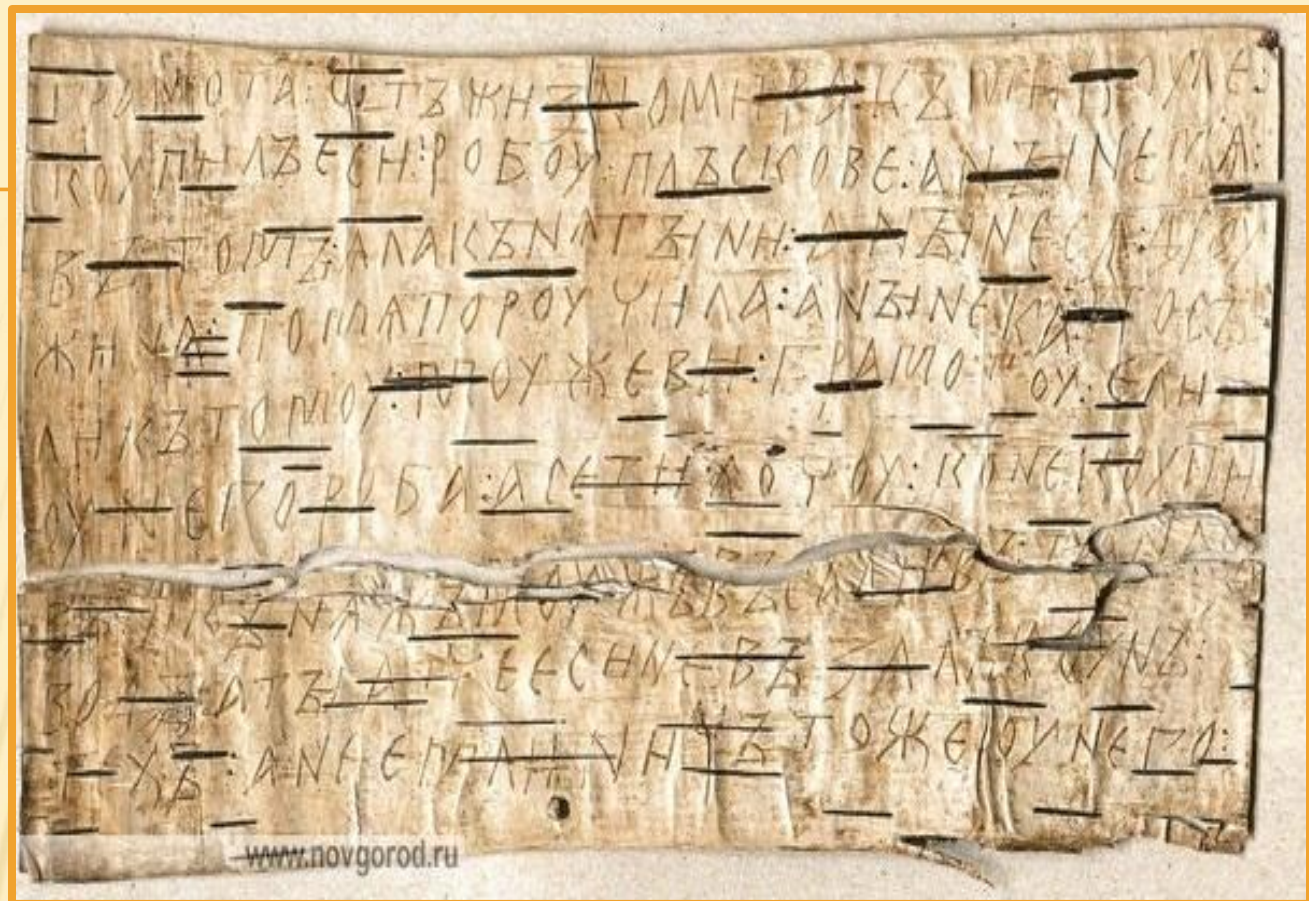 ГРАМОТА : ѠТЪ ЖИЗНОМИРА : КЪ МИКОУЛЕ :
КОУПИЛЪ ЕСИ : РОБОУ : ПЛЪСКОВЕ : А НꙐНЕ МѦ :
ВЪ ТОМЪ : ѦЛА КЪНѦГꙐНИ : А НꙐНЕ СѦ ДРОУ
ЖИНА : ПО МѦ ПОРОУЧИЛА : А НꙐНЕ КА : ПОСЪ
ЛИ КЪ ТОМОУ : МОУЖЕВИ : ГРАМОТОУ : ЕЛИ
ОУ НЕГО РОБА : А СЕ ТИ ХОЧОУ : КОНЕ КОУПИ
ВЪ : И КЪНѦЖЪ МОУЖЪ ВЪСАДИВЪ : ТА НА СЪ
ВОДꙐ : А ТꙐ АТЧЕ ЕСИ НЕ ВЪЗАЛЪ КОУНЪ :
ТЕХЪ : А НЕ ЕМЛИ : НИЧЪТО ЖЕ ОУ НЕГО :
www.novgorod.ru